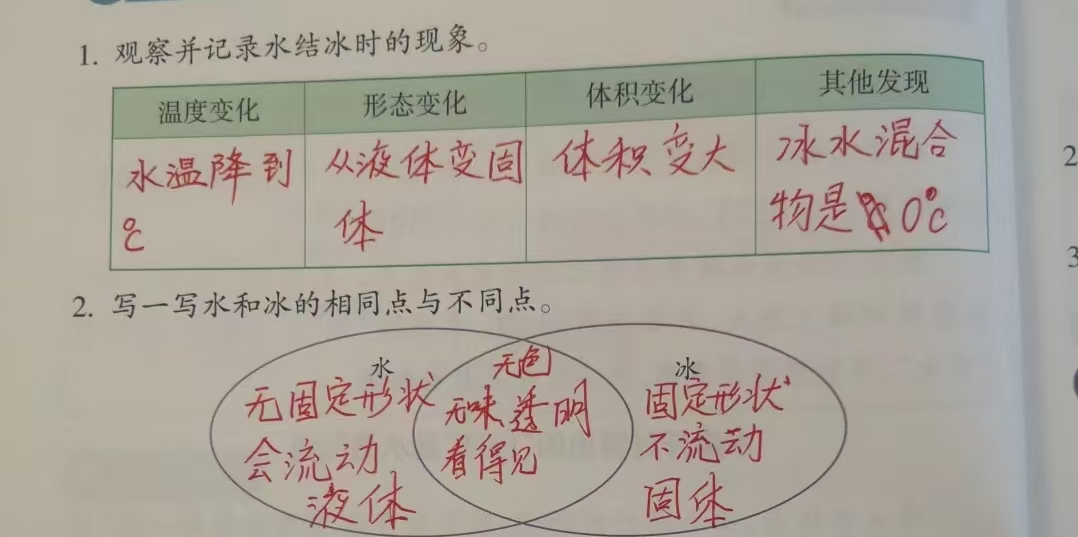 1. 观察并记录水结冰时的现象。
温度变化 形态变化 体积变化 其他发现
水温降到 从液体变固 体积变大 冰水混合
℃ 体 物是 0℃
2
3
2. 写一写水和冰的相同点与不同点。
水 无色 冰
无固定形状 无味透明 固定形状
会流动 看得见 不流动
液体 固体